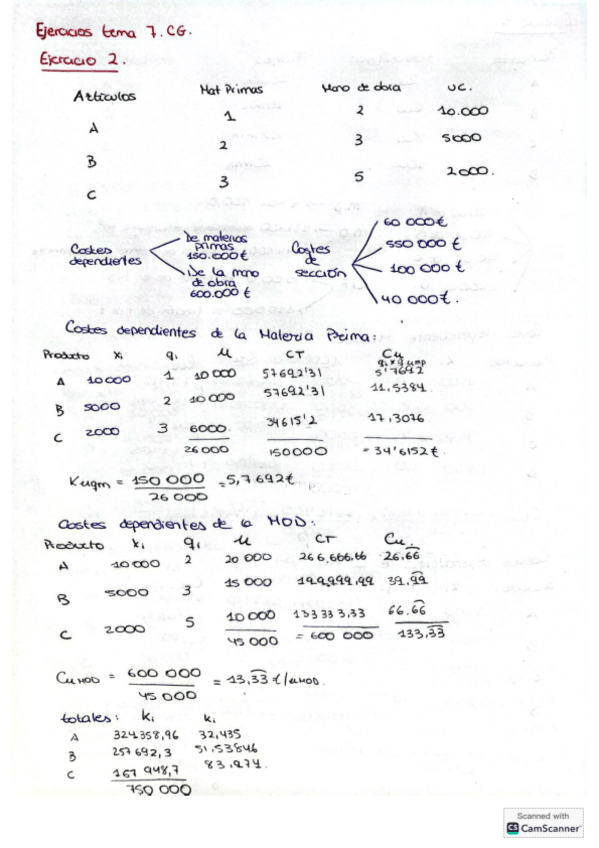 Ejercicios tema 7. CG.
Ejercicio 2.
Artículos Mat Primas Mano de obra UC.
A 1 2 10.000
B 2 3 5000
C 3 5 2000.
Costes dependientes
De materias primas 150.000€
De la mano de obra 600.000 €
Costes de sección
60 000€
550 000 €
100 000 €
40 000€.
Costes dependientes de la Materia Prima:
Producto xi qi u CT Cu
qi x q ump
A 10000 1 10 000 57692'31 5'7692
B 5000 2 10 000 57692'31 11,5384
C 2000 3 6000 34615'2 17,3076
26 000 150000 = 34'6152€.
Kuqm = 150 000 / 26 000 = 5,7692€
Costes dependientes de la MOD:
Producto xi qi u CT Cu.
A 10000 2 20 000 266,666,66 26.66
B 5000 3 15 000 199,999,99 39,99
C 2000 5 10 000 133 333,33 66.66
45 000 = 600 000 133,33
Cu MOD = 600 000 / 45 000 = 13,33 €/umod.
totales: ki ki
A 324358,96 32,435
B 257 692,3 51,53846
C 167 948,7 83,974.
750 000
Scanned with
CS CamScanner